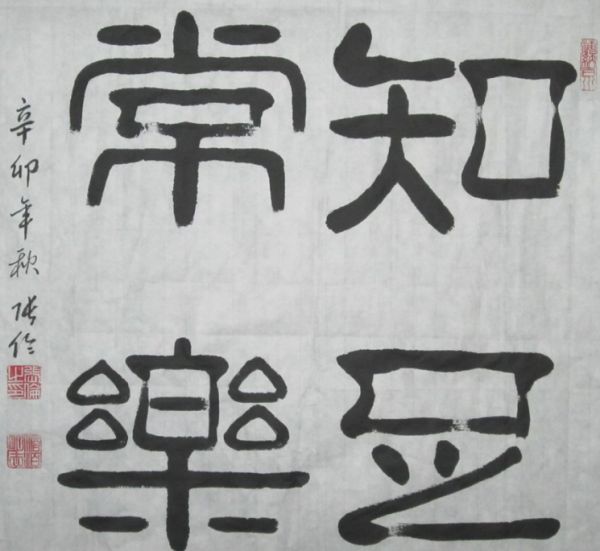 知足
常樂
辛卯年秋 張倫